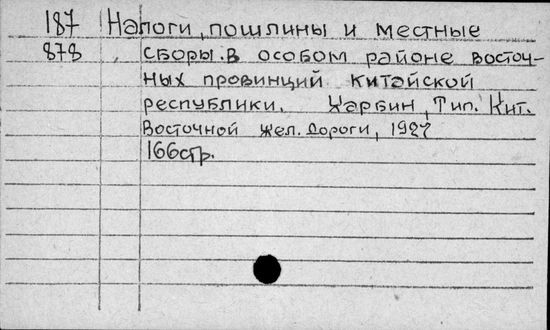 187 Налоги, пошлины и местные
878 сборы. В особом районе восточ-
ных провинций Китайской
республики. Харбин, Тип. Кит.
Восточной Жел. Дороги, 1927
166стр.